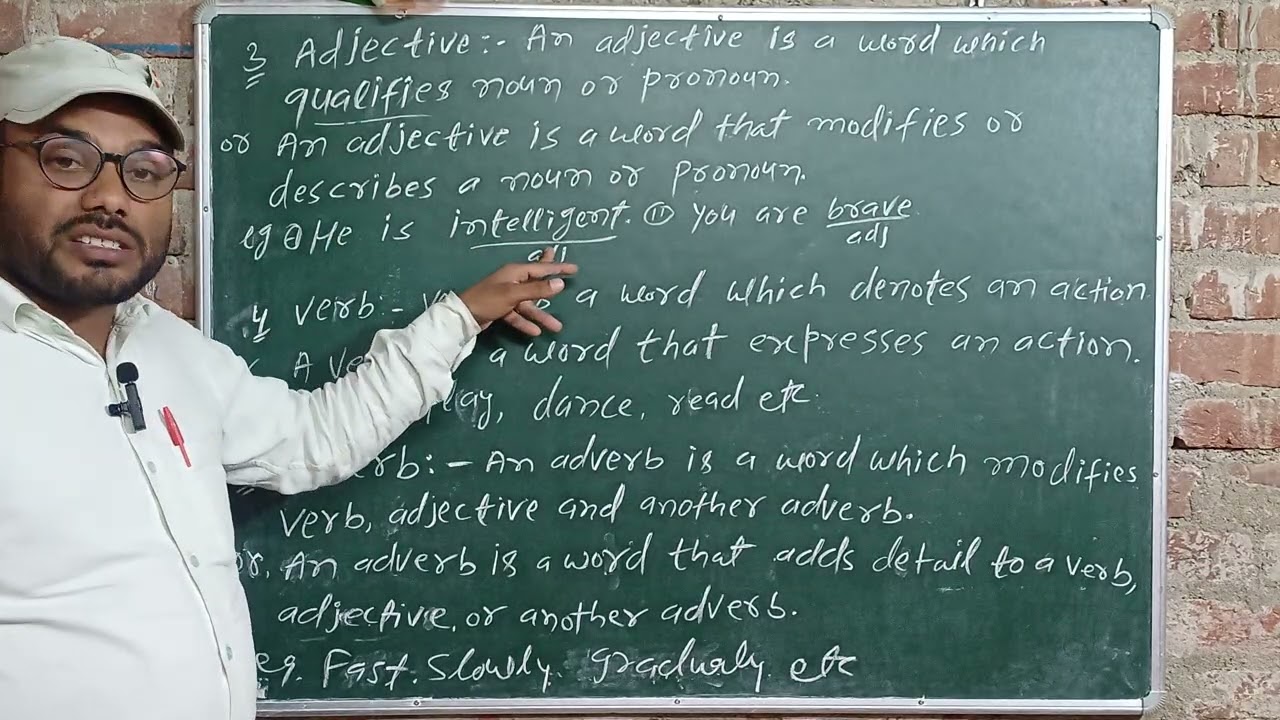 3 Adjective:- An adjective is a word which
qualifies noun or pronoun.
or An adjective is a word that modifies or
describes a noun or pronoun.
eg (i) He is intelligent. (ii) You are brave
adj adj
4 Verb:- a word which denotes an action
A a word that expresses an action.
play, dance, read etc.
:- An adverb is a word which modifies
verb, adjective and another adverb.
or, An adverb is a word that adds detail to a verb,
adjective, or another adverb.
eg. Fast. Slowly.
etc